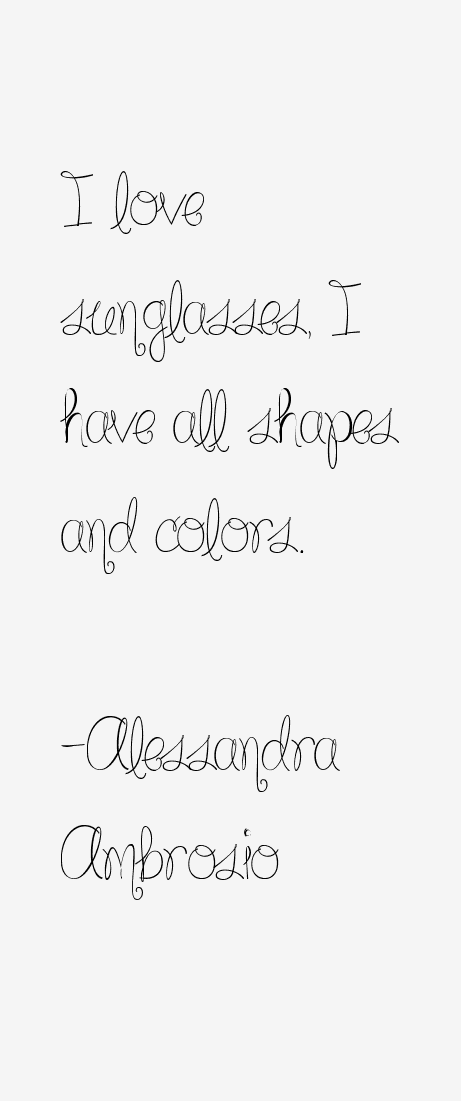 I love
sunglasses, I
have all shapes
and colors.
-Alessandra
Ambrosio